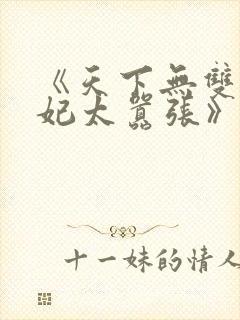 《天下無雙
妃太囂張》
十一妹的情人